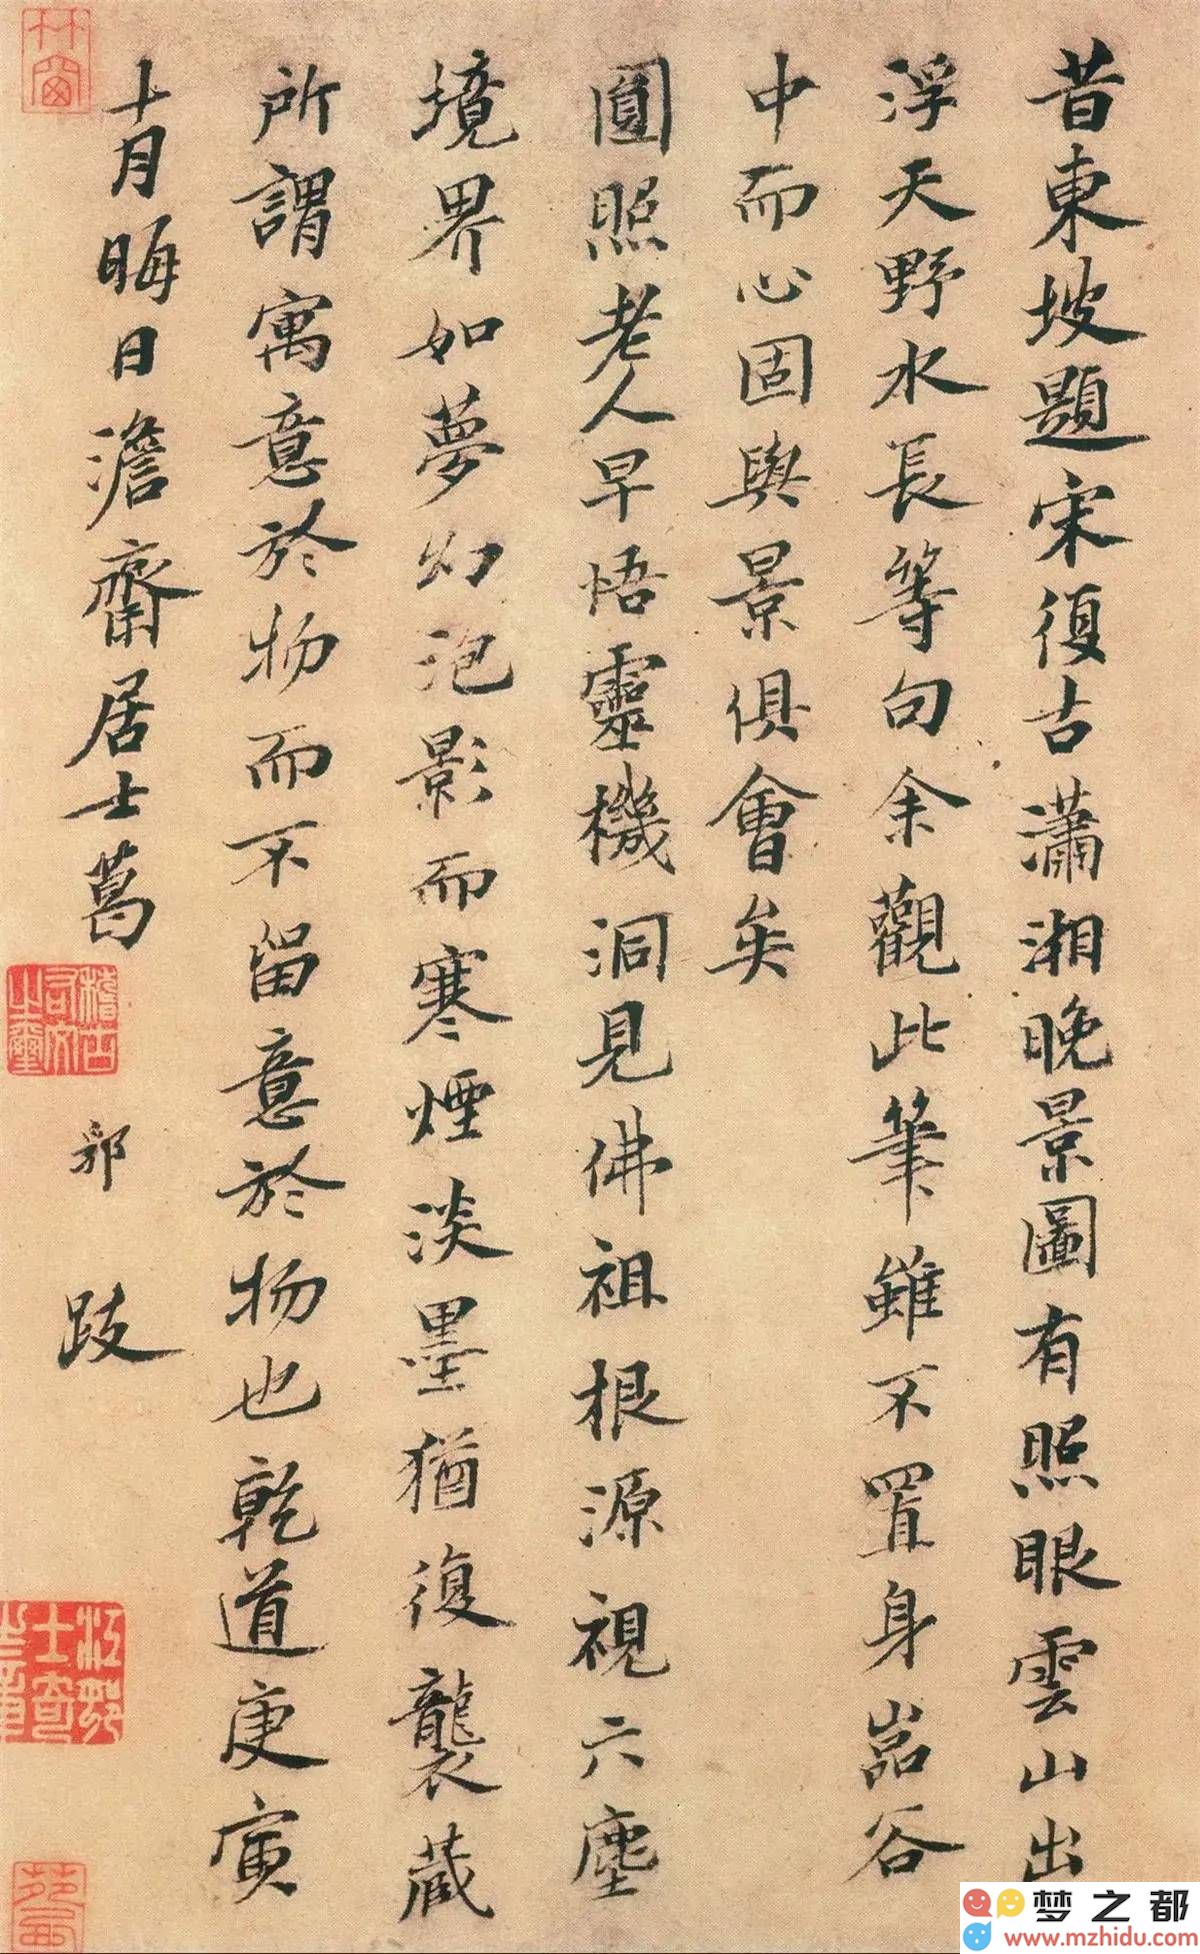 昔東坡題宋復古瀟湘晚景圖有照眼雲山出
浮天野水長等句余觀此筆雖不置身嵓谷
中而心固與景俱會矣
圓照老人早悟靈機洞見佛祖根源視六塵
境界如夢幻泡影而寒煙淡墨猶復襲藏
所謂寓意於物而不留意於物也乾道庚寅
十月晦日澹齋居士葛
郯
跋
稽古右文之璽
梦之都
www.mzhidu.com